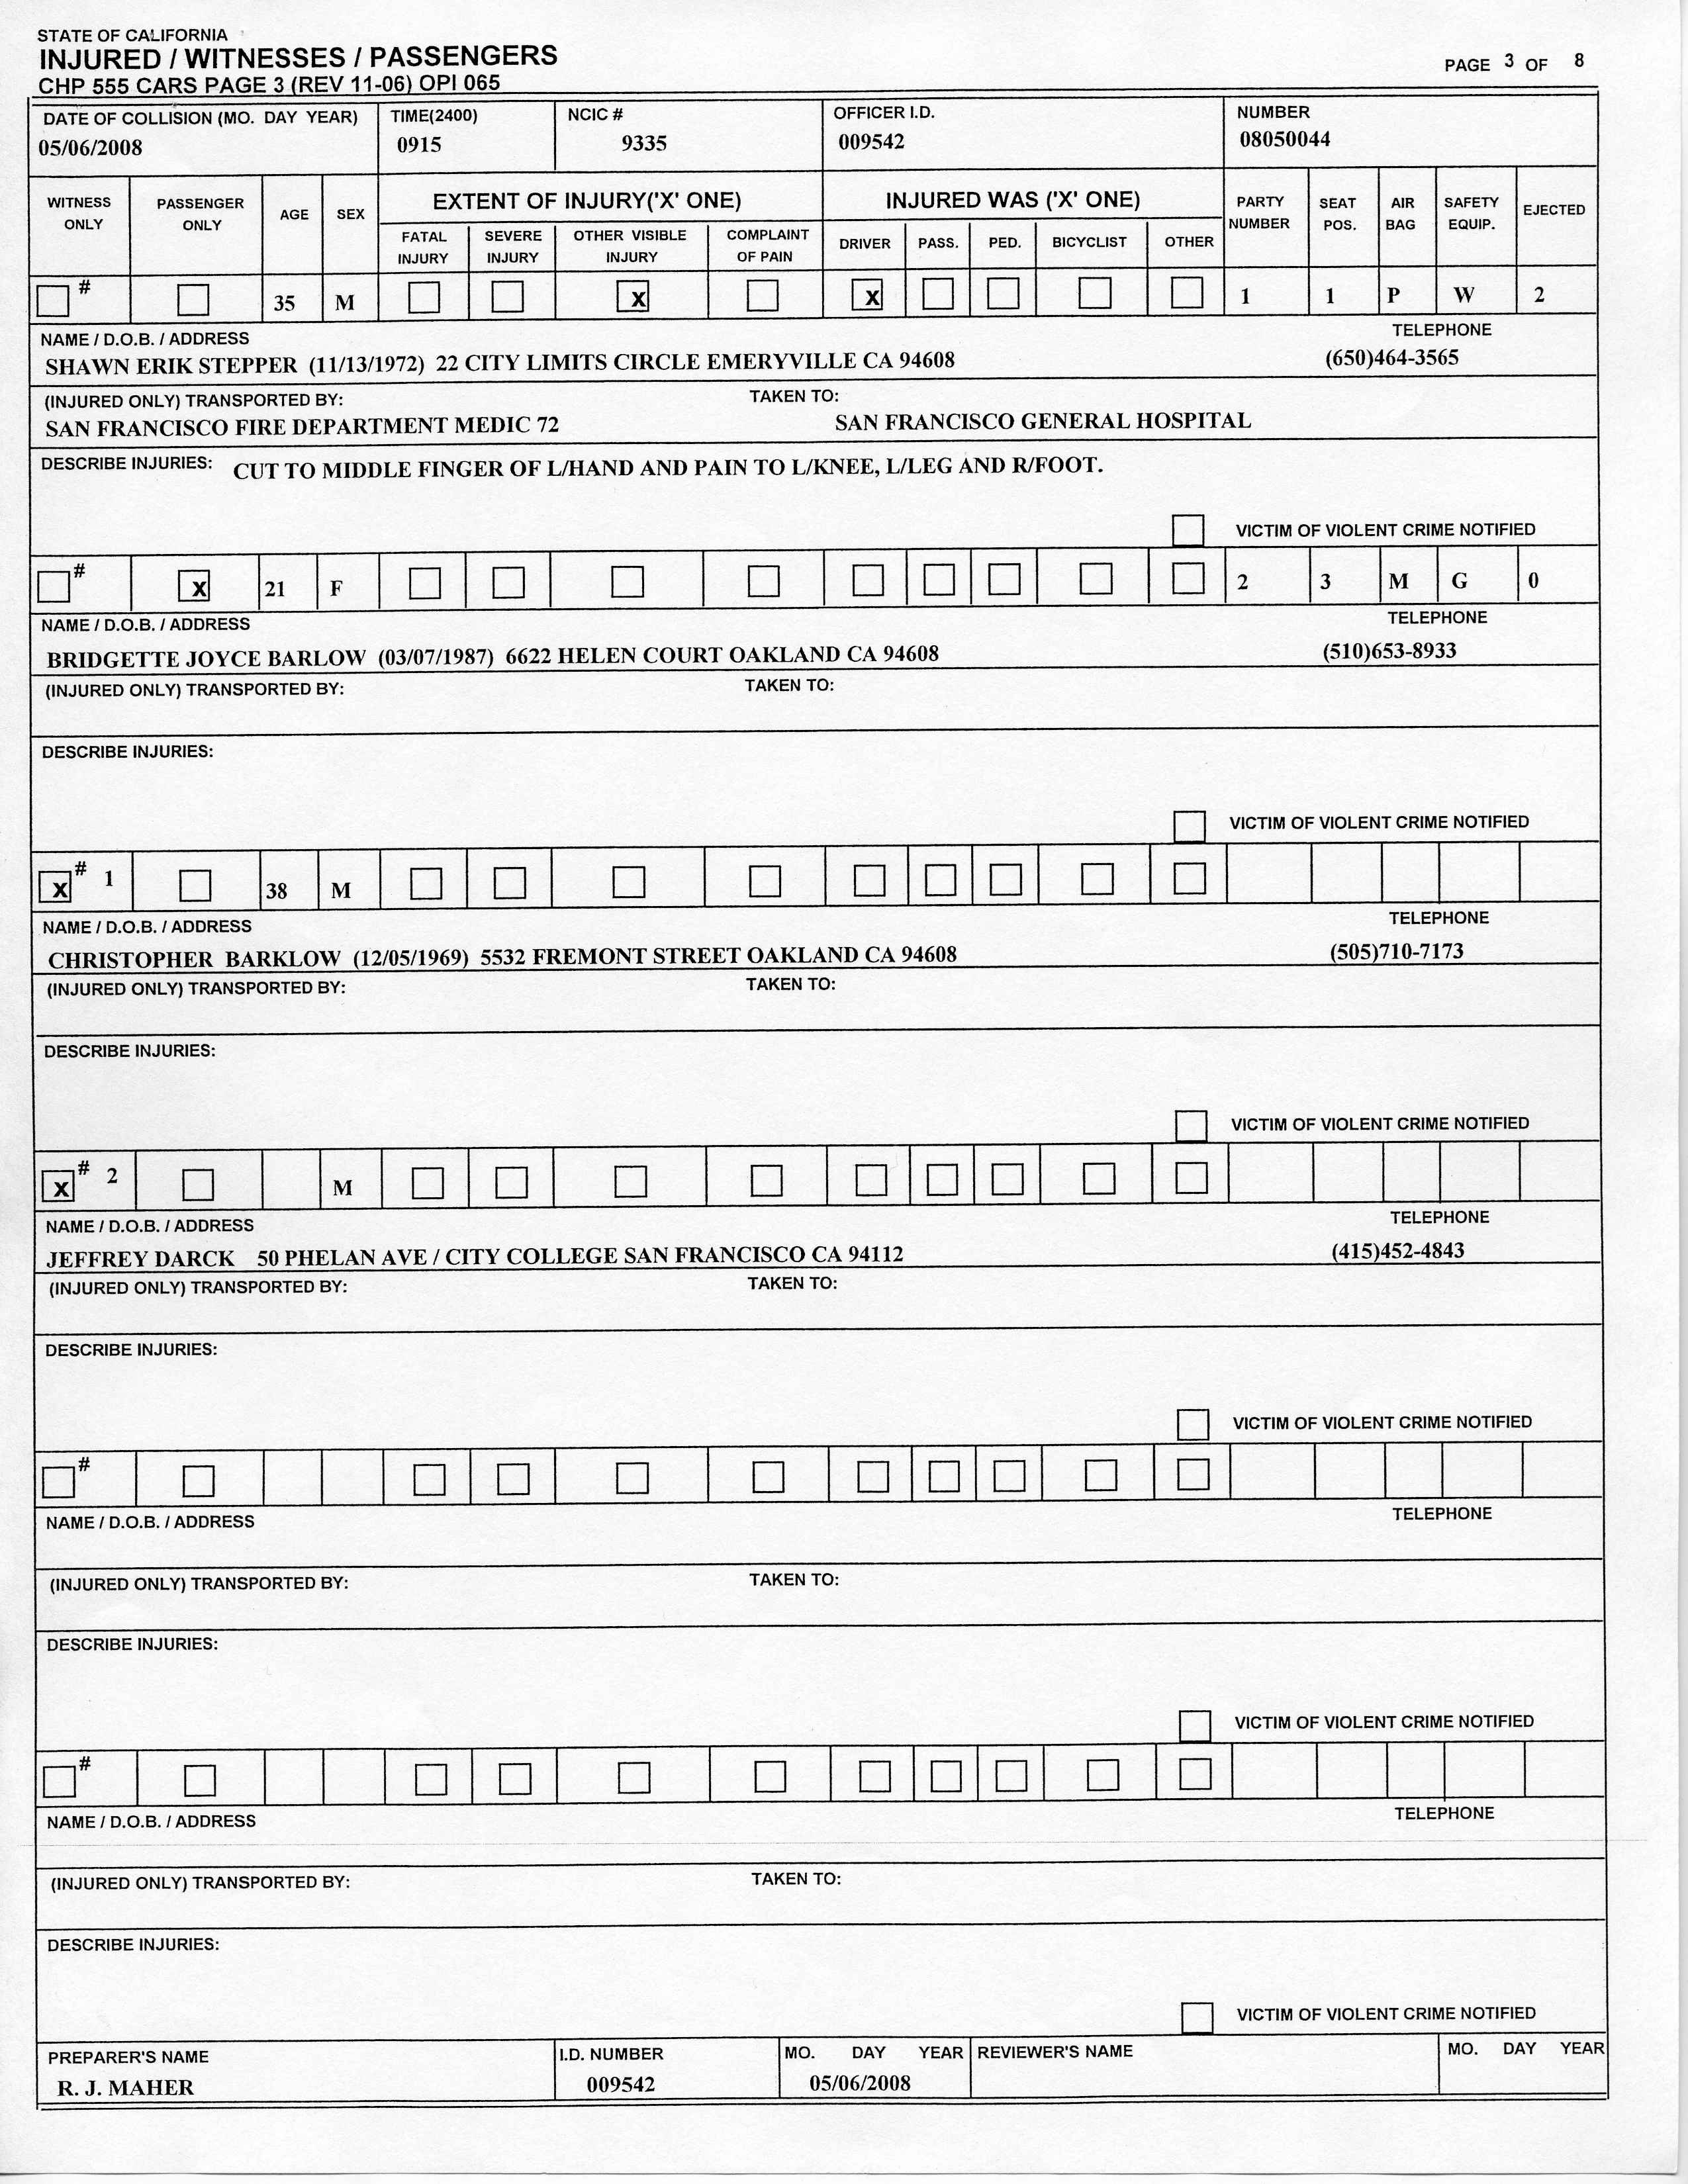 STATE OF CALIFORNIA
INJURED / WITNESSES / PASSENGERS
CHP 555 CARS PAGE 3 (REV 11-06) OPI 065
PAGE 3 OF 8
DATE OF COLLISION (MO. DAY YEAR) TIME(2400) NCIC # OFFICER I.D. NUMBER
05/06/2008 0915 9335 009542 08050044
WITNESS ONLY PASSENGER ONLY AGE SEX EXTENT OF INJURY('X' ONE) INJURED WAS ('X' ONE) PARTY NUMBER SEAT POS. AIR BAG SAFETY EQUIP. EJECTED
FATAL INJURY SEVERE INJURY OTHER VISIBLE INJURY COMPLAINT OF PAIN DRIVER PASS. PED. BICYCLIST OTHER
# 35 M X X 1 1 P W 2
NAME / D.O.B. / ADDRESS TELEPHONE
SHAWN ERIK STEPPER (11/13/1972) 22 CITY LIMITS CIRCLE EMERYVILLE CA 94608 (650)464-3565
(INJURED ONLY) TRANSPORTED BY: TAKEN TO:
SAN FRANCISCO FIRE DEPARTMENT MEDIC 72 SAN FRANCISCO GENERAL HOSPITAL
DESCRIBE INJURIES: CUT TO MIDDLE FINGER OF L/HAND AND PAIN TO L/KNEE, L/LEG AND R/FOOT.
VICTIM OF VIOLENT CRIME NOTIFIED
# X 21 F 2 3 M G 0
NAME / D.O.B. / ADDRESS TELEPHONE
BRIDGETTE JOYCE BARLOW (03/07/1987) 6622 HELEN COURT OAKLAND CA 94608 (510)653-8933
(INJURED ONLY) TRANSPORTED BY: TAKEN TO:
DESCRIBE INJURIES:
VICTIM OF VIOLENT CRIME NOTIFIED
X # 1 38 M
NAME / D.O.B. / ADDRESS TELEPHONE
CHRISTOPHER BARKLOW (12/05/1969) 5532 FREMONT STREET OAKLAND CA 94608 (505)710-7173
(INJURED ONLY) TRANSPORTED BY: TAKEN TO:
DESCRIBE INJURIES:
VICTIM OF VIOLENT CRIME NOTIFIED
X # 2 M
NAME / D.O.B. / ADDRESS TELEPHONE
JEFFREY DARCK 50 PHELAN AVE / CITY COLLEGE SAN FRANCISCO CA 94112 (415)452-4843
(INJURED ONLY) TRANSPORTED BY: TAKEN TO:
DESCRIBE INJURIES:
VICTIM OF VIOLENT CRIME NOTIFIED
#
NAME / D.O.B. / ADDRESS TELEPHONE
(INJURED ONLY) TRANSPORTED BY: TAKEN TO:
DESCRIBE INJURIES:
VICTIM OF VIOLENT CRIME NOTIFIED
#
NAME / D.O.B. / ADDRESS TELEPHONE
(INJURED ONLY) TRANSPORTED BY: TAKEN TO:
DESCRIBE INJURIES:
VICTIM OF VIOLENT CRIME NOTIFIED
PREPARER'S NAME I.D. NUMBER MO. DAY YEAR REVIEWER'S NAME MO. DAY YEAR
R. J. MAHER 009542 05/06/2008